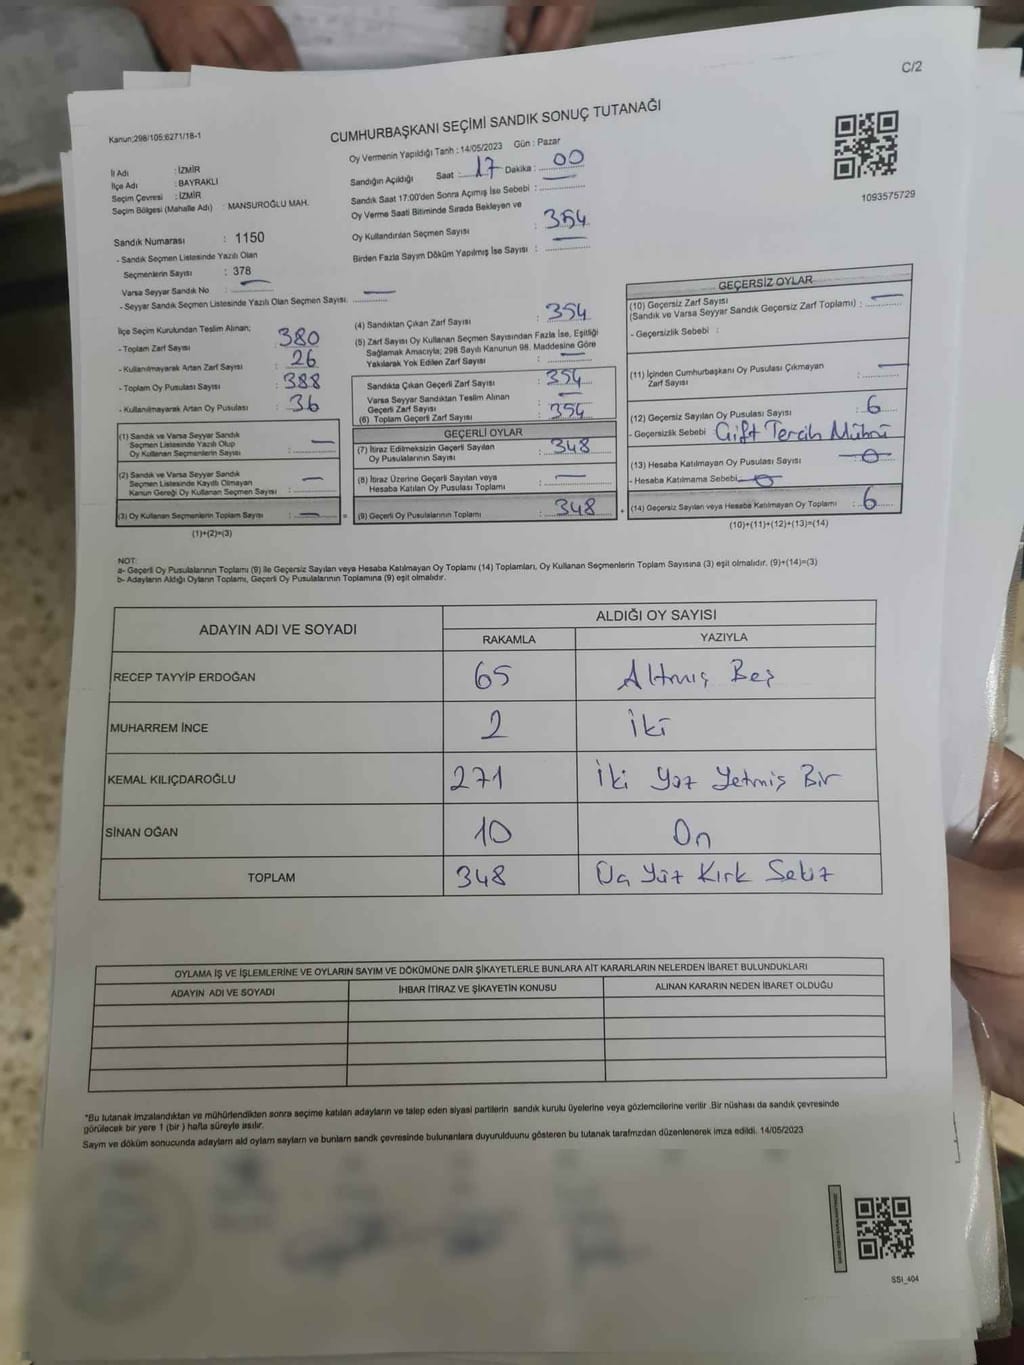 C/2
Kanun:298/105;6271/18-1
CUMHURBAŞKANI SEÇİMİ SANDIK SONUÇ TUTANAĞI
Oy Vermenin Yapıldığı Tarih : 14/05/2023 Gün : Pazar
1093575729
İl Adı : İZMİR
İlçe Adı : BAYRAKLI
Seçim Çevresi : İZMİR
Seçim Bölgesi (Mahalle Adı) : MANSUROĞLU MAH.
Sandık Numarası : 1150
- Sandık Seçmen Listesinde Yazılı Olan
Seçmenlerin Sayısı : 378
Varsa Seyyar Sandık No : —
- Seyyar Sandık Seçmen Listesinde Yazılı Olan Seçmen Sayısı. —
Sandığın Açıldığı Saat : 17 Dakika : 00
Sandık Saat 17:00'den Sonra Açımış İse Sebebi : —
Oy Verme Saati Bitiminde Sırada Bekleyen ve
Oy Kullandırılan Seçmen Sayısı : 354
Birden Fazla Sayım Döküm Yapılmış İse Sayısı : —
İlçe Seçim Kurulundan Teslim Alınan;
- Toplam Zarf Sayısı : 380
- Kullanılmayarak Artan Zarf Sayısı : 26
- Toplam Oy Pusulası Sayısı : 388
- Kullanılmayarak Artan Oy Pusulası : 36
(1) Sandık ve Varsa Seyyar Sandık
Seçmen Listesinde Yazılı Olup
Oy Kullanan Seçmenlerin Sayısı : —
(2) Sandık ve Varsa Seyyar Sandık
Seçmen Listesinde Kayıtlı Olmayan
Kanun Gereği Oy Kullanan Seçmen Sayısı : —
(3) Oy Kullanan Seçmenlerin Toplam Sayısı : —
(1)+(2)=(3)
(4) Sandıktan Çıkan Zarf Sayısı : 354
(5) Zarf Sayısı Oy Kullanan Seçmen Sayısından Fazla İse, Eşitliği
Sağlamak Amacıyla; 298 Sayılı Kanunun 98. Maddesine Göre
Yakılarak Yok Edilen Zarf Sayısı : —
Sandıkta Çıkan Geçerli Zarf Sayısı : 354
Varsa Seyyar Sandıktan Teslim Alınan
Geçerli Zarf Sayısı : —
(6) Toplam Geçerli Zarf Sayısı : 354
GEÇERLİ OYLAR
(7) İtiraz Edilmeksizin Geçerli Sayılan
Oy Pusulalarının Sayısı : 348
(8) İtiraz Üzerine Geçerli Sayılan veya
Hesaba Katılan Oy Pusulası Toplamı : —
= (9) Geçerli Oy Pusulalarının Toplamı : 348
GEÇERSİZ OYLAR
(10) Geçersiz Zarf Sayısı
(Sandık ve Varsa Seyyar Sandık Geçersiz Zarf Toplamı) : —
- Geçersizlik Sebebi :
(11) İçinden Cumhurbaşkanı Oy Pusulası Çıkmayan
Zarf Sayısı : —
(12) Geçersiz Sayılan Oy Pusulası Sayısı : 6
- Geçersizlik Sebebi Çift Tercih Mührü
(13) Hesaba Katılmayan Oy Pusulası Sayısı : 0
- Hesaba Katılmama Sebebi 0
+ (14) Geçersiz Sayılan veya Hesaba Katılmayan Oy Toplamı : 6
(10)+(11)+(12)+(13)=(14)
NOT:
a- Geçerli Oy Pusulalarının Toplamı (9) ile Geçersiz Sayılan veya Hesaba Katılmayan Oy Toplamı (14) Toplamları, Oy Kullanan Seçmenlerin Toplam Sayısına (3) eşit olmalıdır. (9)+(14)=(3)
b- Adayların Aldığı Oyların Toplamı, Geçerli Oy Pusulalarının Toplamına (9) eşit olmalıdır.
ADAYIN ADI VE SOYADI ALDIĞI OY SAYISI
RAKAMLA YAZIYLA
RECEP TAYYİP ERDOĞAN 65 Altmış Beş
MUHARREM İNCE 2 İki
KEMAL KILIÇDAROĞLU 271 İki Yüz Yetmiş Bir
SİNAN OĞAN 10 On
TOPLAM 348 Üç Yüz Kırk Sekiz
OYLAMA İŞ VE İŞLEMLERİNE VE OYLARIN SAYIM VE DÖKÜMÜNE DAİR ŞİKAYETLERLE BUNLARA AİT KARARLARIN NELERDEN İBARET BULUNDUKLARI
ADAYIN ADI VE SOYADI İHBAR İTİRAZ VE ŞİKAYETİN KONUSU ALINAN KARARIN NEDEN İBARET OLDUĞU
*Bu tutanak imzalandıktan ve mühürlendikten sonra seçime katılan adayların ve talep eden siyasi partilerin sandık kurulu üyelerine veya gözlemcilerine verilir .Bir nüshası da sandık çevresinde
görülecek bir yere 1 (bir ) hafta süreyle asılır.
Sayım ve döküm sonucunda adayların ald oyların sayıların ve bunların sandk çevresinde bulunanlara duyurulduunu gösteren bu tutanak tarafmzdan düzenlenerek imza edildi. 14/05/2023
SSI_404